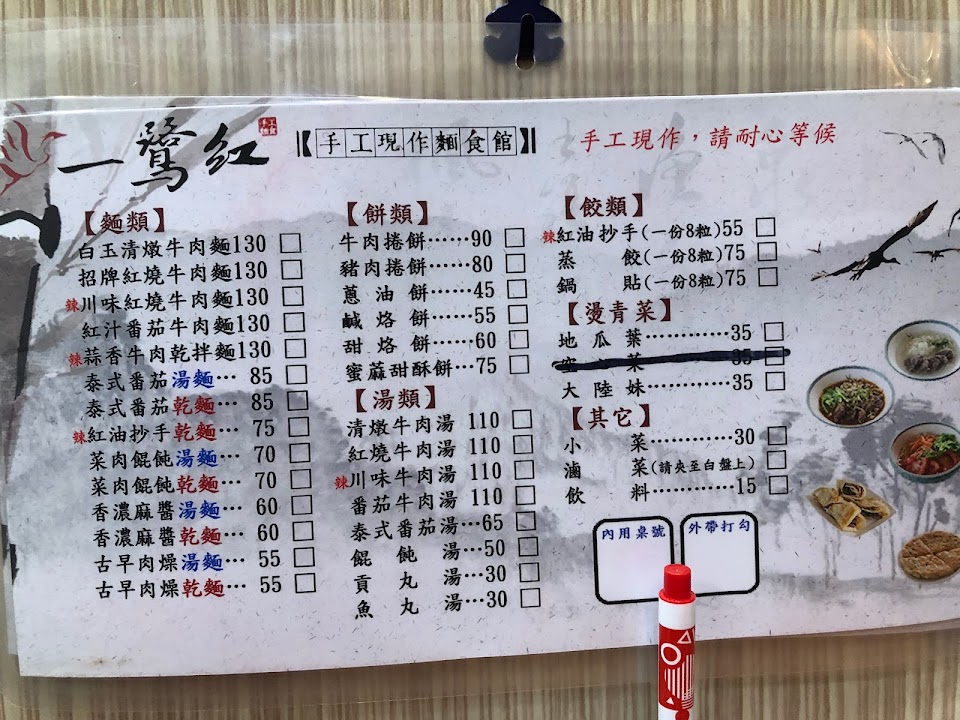 一鷺紅
手工
麵食
【手工現作麵食館】
手工現作，請耐心等候
【麵類】
白玉清燉牛肉麵130
招牌紅燒牛肉麵130
辣川味紅燒牛肉麵130
紅汁番茄牛肉麵130
辣蒜香牛肉乾拌麵130
泰式番茄湯麵… 85
泰式番茄乾麵… 85
辣紅油抄手乾麵… 75
菜肉餛飩湯麵… 70
菜肉餛飩乾麵… 70
香濃麻醬湯麵… 60
香濃麻醬乾麵… 60
古早肉燥湯麵… 55
古早肉燥乾麵… 55
【餅類】
牛肉捲餅……90
豬肉捲餅……80
蔥油餅……45
鹹烙餅……55
甜烙餅……60
蜜蔴甜酥餅…75
【湯類】
清燉牛肉湯 110
紅燒牛肉湯 110
辣川味牛肉湯 110
番茄牛肉湯 110
泰式番茄湯…65
餛飩湯…50
貢丸湯…30
魚丸湯…30
【餃類】
辣紅油抄手(一份8粒)55
蒸餃(一份8粒)75
鍋貼(一份8粒)75
【燙青菜】
地瓜葉…………35
空菜…………35
大陸妹…………35
【其它】
小菜…………30
滷菜(請夾至白盤上)
飲料…………15
內用桌號
外帶打勾